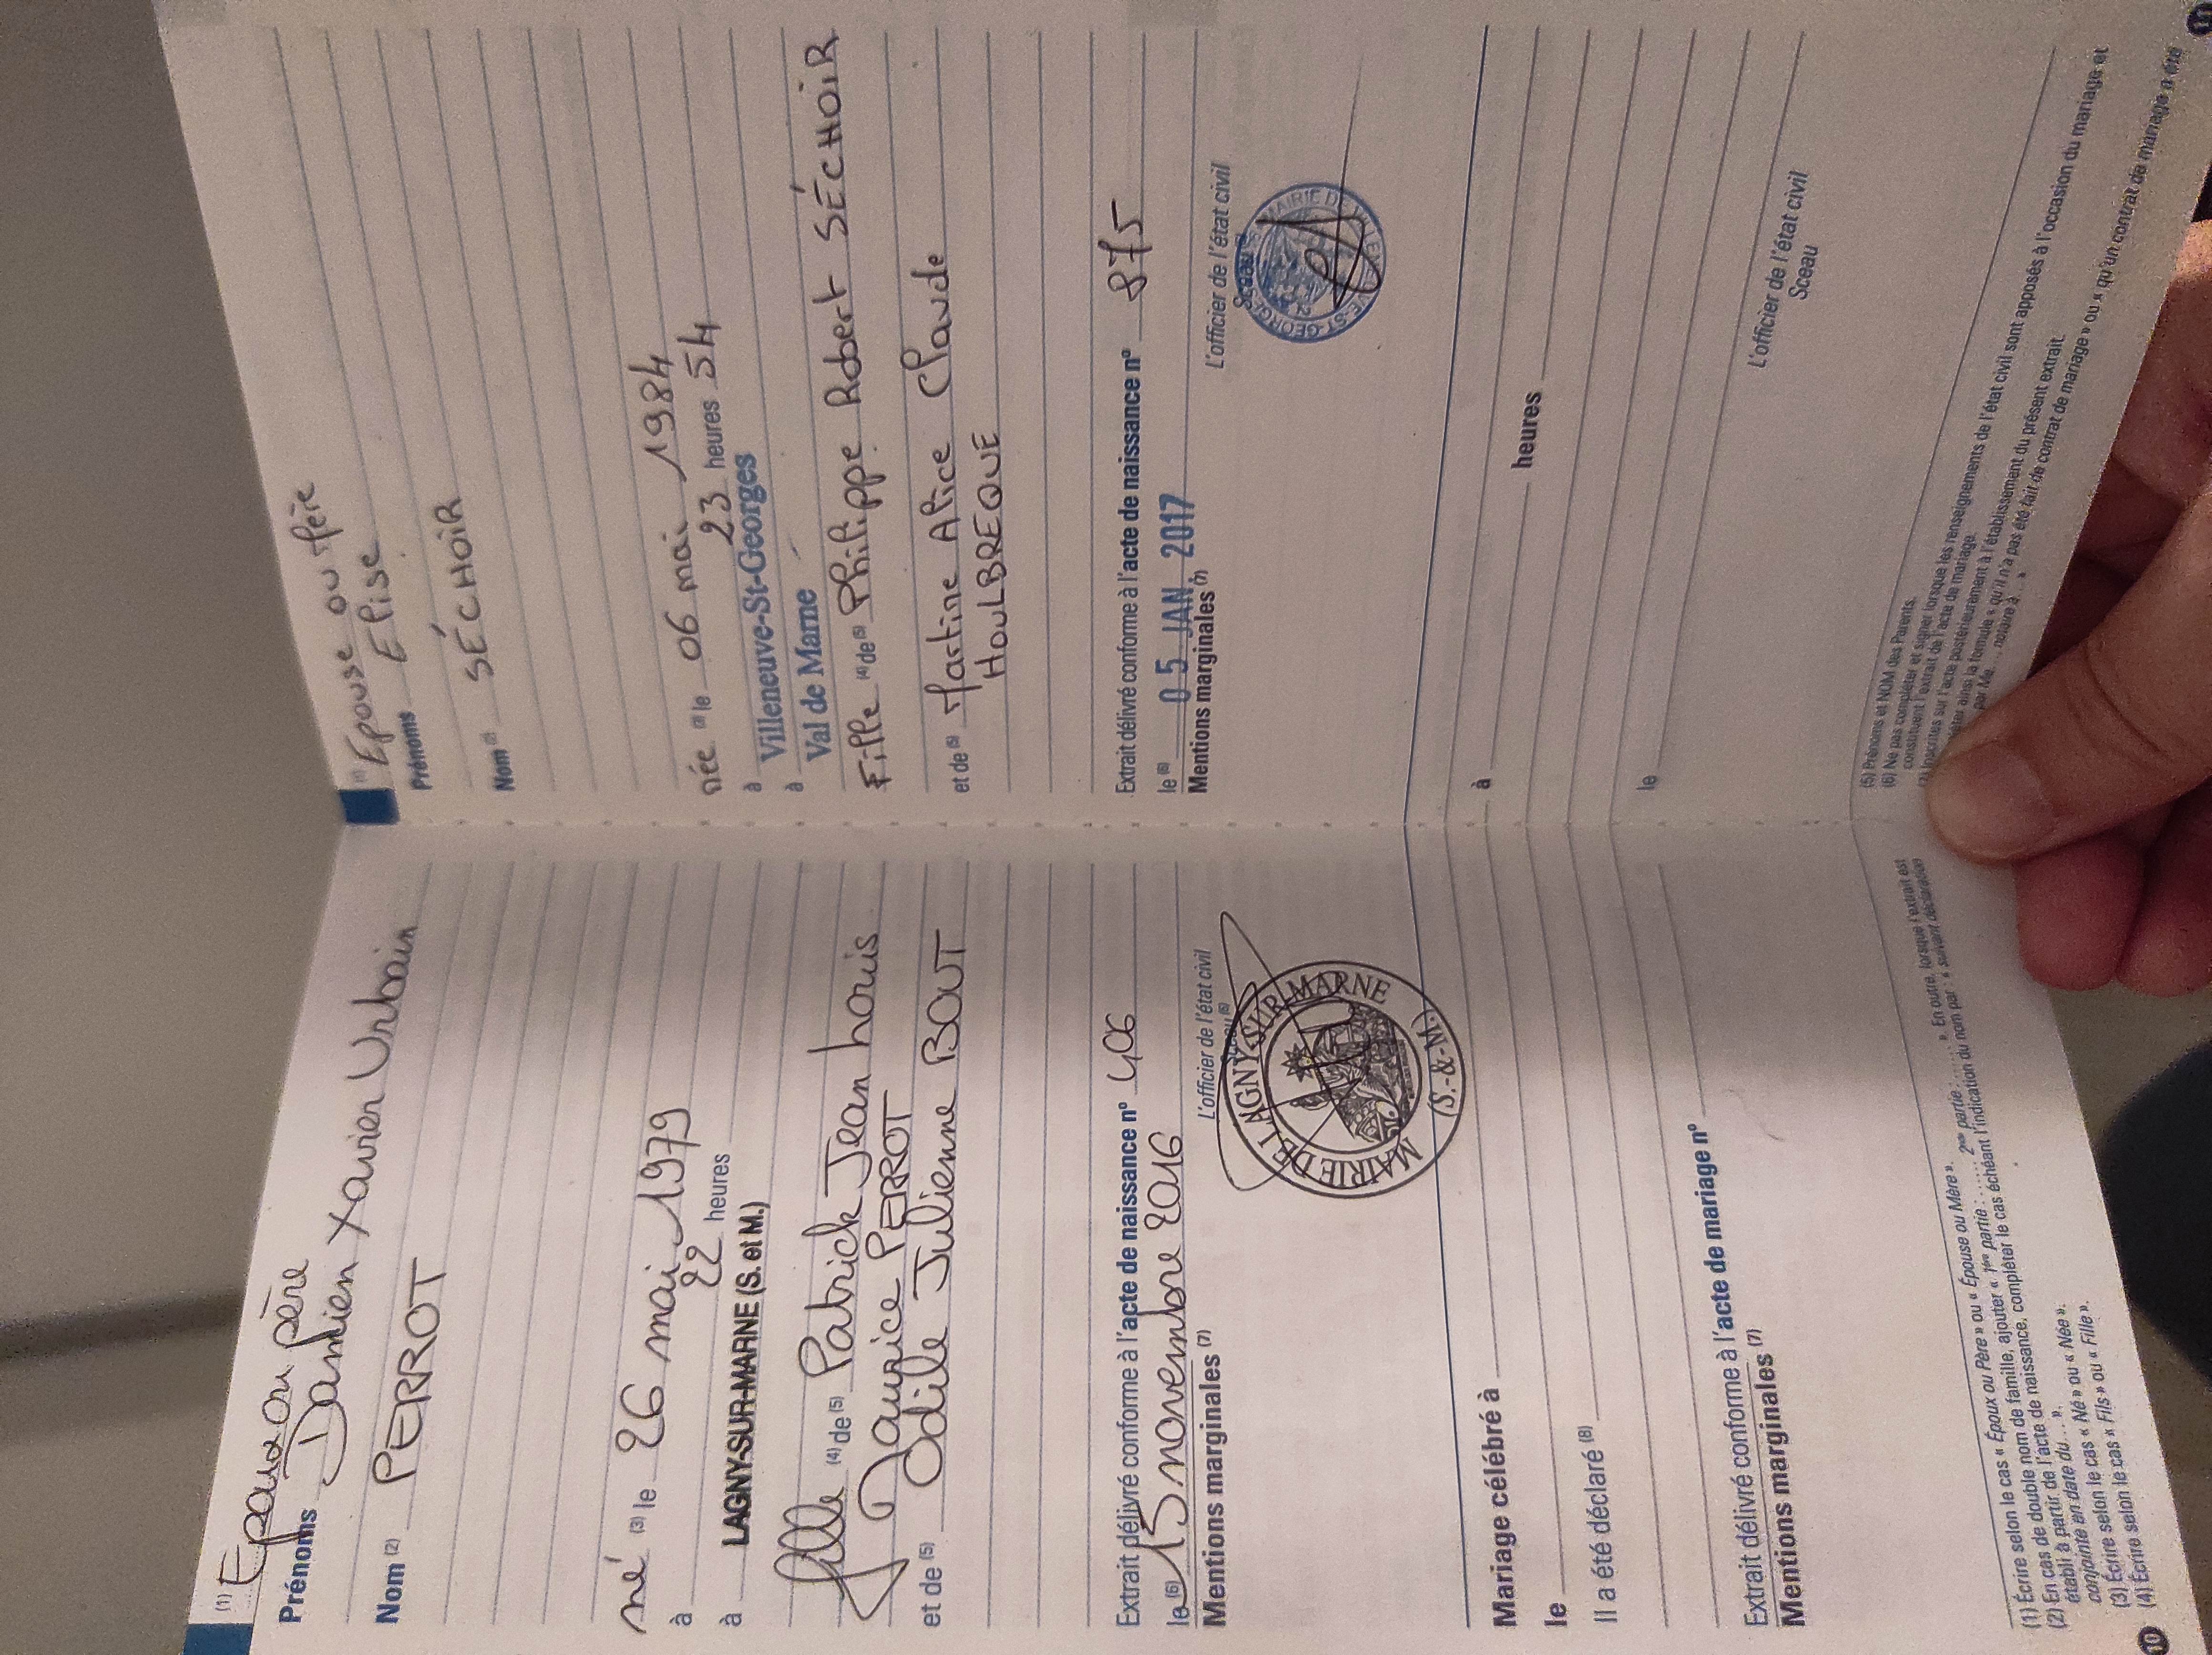 (1) Epoux ou père
Prénoms Damien Xavier Urbain
Nom (2) PERROT
né (3) le 26 mai 1979
à 22 heures
à LAGNY-SUR-MARNE (S. et M.)
fille (4) de (5) Patrick Jean Louis
Maurice PERROT
et de (5) Odile Julienne BOUT
Extrait délivré conforme à l'acte de naissance n° 406
le (6) 15 novembre 2016
Mentions marginales (7)
L'officier de l'état civil
MAIRIE DE LAGNY-SUR-MARNE
(S.-&-M.)
Mariage célébré à
le
Il a été déclaré (8)
Extrait délivré conforme à l'acte de mariage n°
Mentions marginales (7)
(1) Écrire selon le cas « Époux ou Père » ou « Épouse ou Mère ».
(2) En cas de double nom de famille, ajouter « 1ère partie : ..... 2ème partie : ..... ». En outre, lorsque l'extrait est
établi à partir de l'acte de naissance, compléter le cas échéant l'indication du nom par : « suivant déclaration
conjointe en date du... ».
(3) Écrire selon le cas « Né » ou « Née ».
(4) Écrire selon le cas « Fils » ou « Fille ».
10
(1) Epouse ou Mère
Prénoms Elise
Nom (2) SÉCHOIR
née (3) le 06 mai 1984
à 23 heures 54
à Villeneuve-St-Georges
à Val de Marne
Fille (4) de (5) Philippe Robert SÉCHOIR
et de (5) Martine Alice Claude
HOULBREQUE
Extrait délivré conforme à l'acte de naissance n° 875
le (6) 05 JAN. 2017
Mentions marginales (7)
L'officier de l'état civil
Sceau
MAIRIE DE VILLENEUVE-ST-GEORGES
à heures
le
L'officier de l'état civil
Sceau
(5) Prénoms et NOM des Parents.
(6) Ne pas compléter et signer lorsque les renseignements de l'état civil sont apposés à l'occasion du mariage et
constituent l'extrait de l'acte de mariage.
(7) Inscrites sur l'acte postérieurement à l'établissement du présent extrait.
ainsi la formule « qu'il n'a pas été fait de contrat de mariage » ou « qu'un contrat de mariage a été
par Me... notaire à... »
11